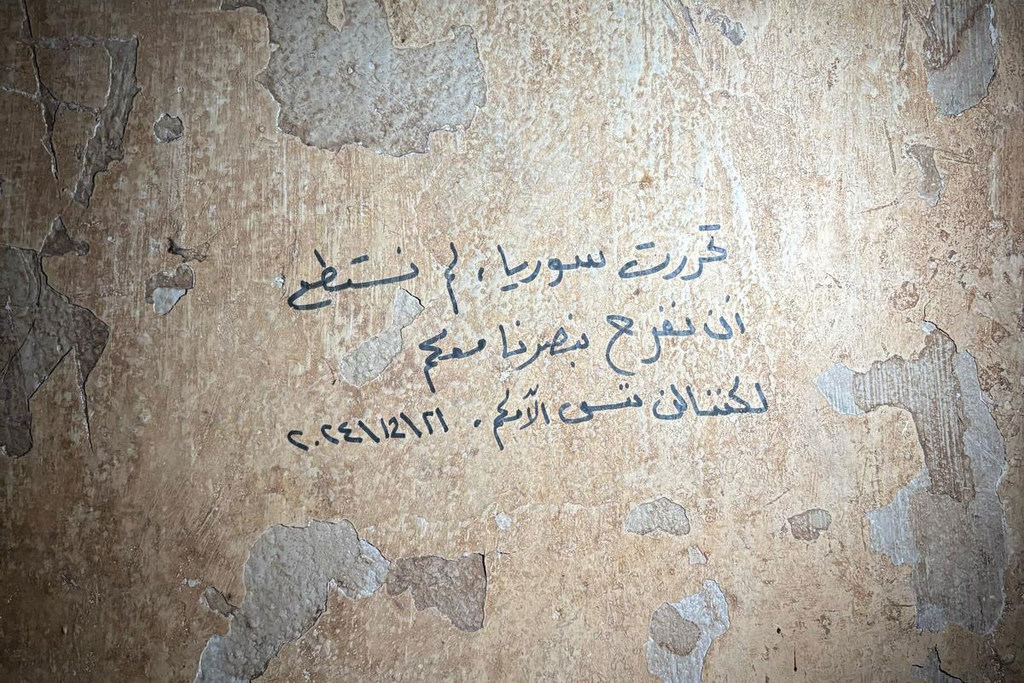 تحررت سوريا، لم نستطع
ان نفرح بنصرنا معكم
لكننا لن ننسى آلامكم. ٢٠٢٤\١٢\٢١